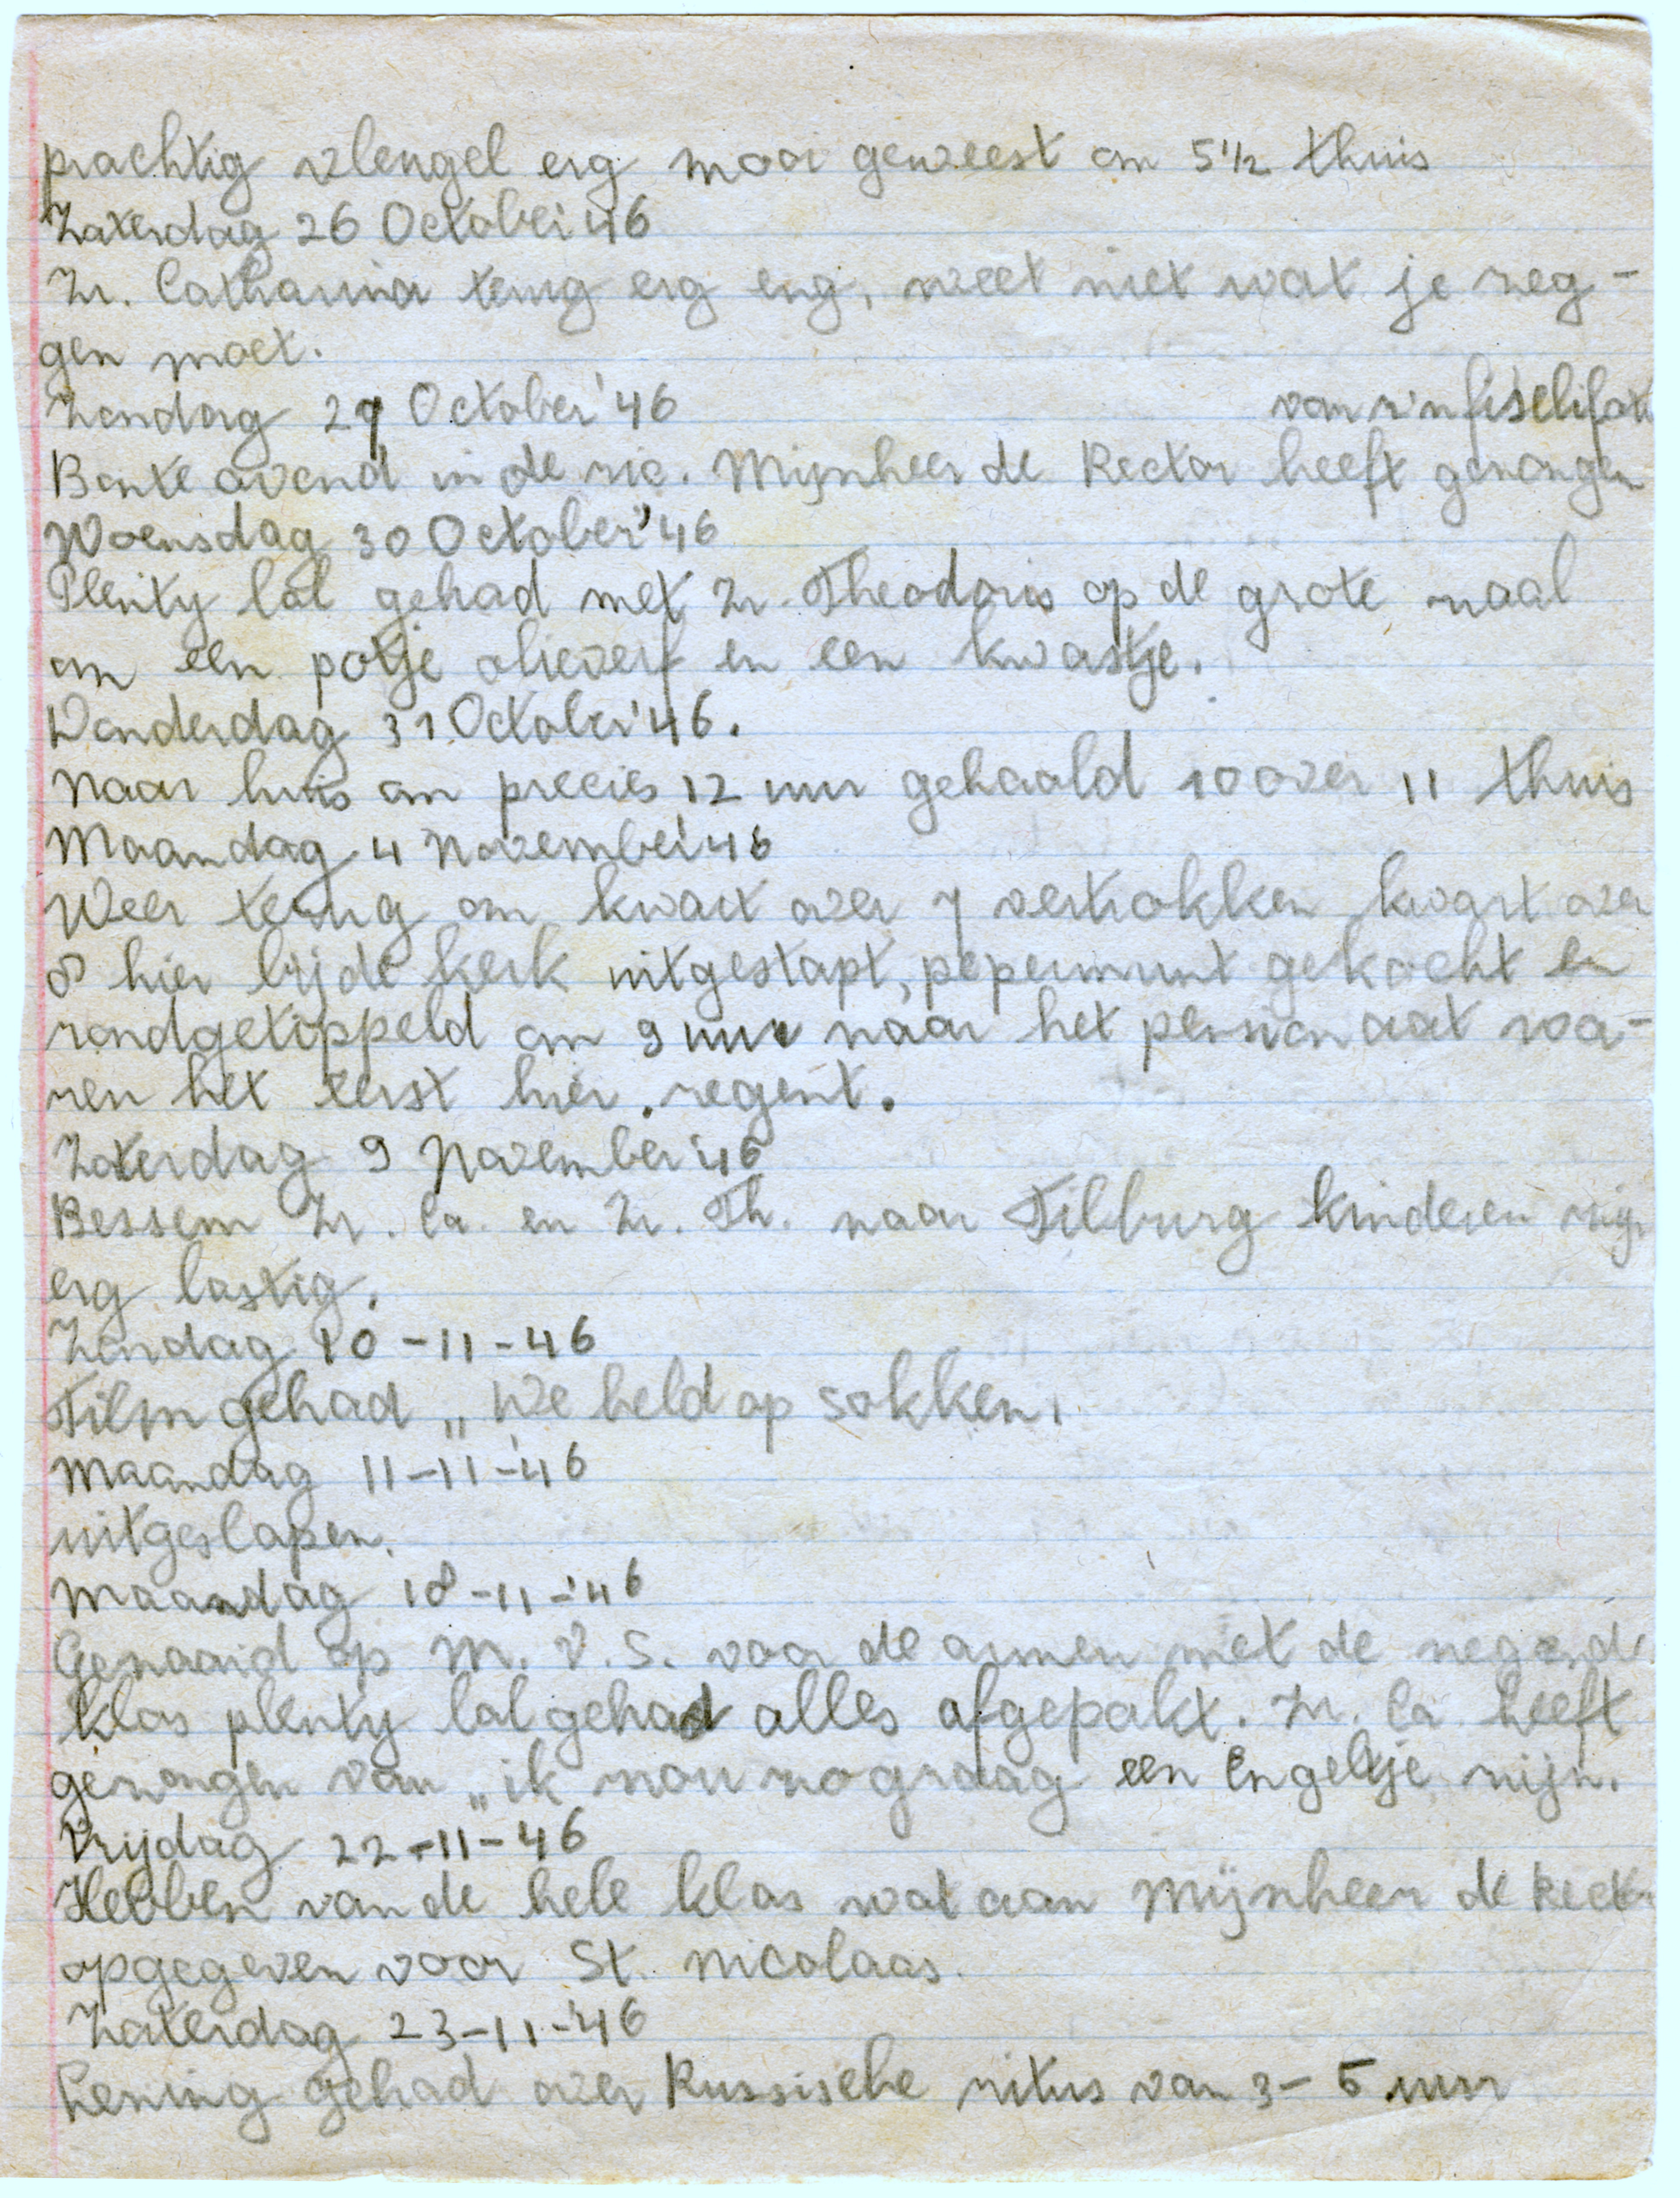 prachtig vleugel erg mooi geweest om 5 1/2 thuis
Zaterdag 26 October '46
Zr. Catharina terug erg eng, weet niet wat je zeg-
gen moet.
Zondag 27 October '46 van z'n fiselifax
Bonte avond in de rec. Mijnheer de Rector heeft gezongen
Woensdag 30 October '46
Plenty lol gehad met Zr. Theodoris op de grote zaal
om een potje olieverf en een kwastje.
Donderdag 31 October '46.
Naar huis om precies 12 uur gehaald 10 over 11 thuis
Maandag 4 November '46
Weer terug om kwart over 7 vertrokken kwart over
8 hier bij de kerk uitgestapt, pepermunt gekocht en
rondgetippeld om 9 uur naar het pensionaat wa-
ren het eerst hier. regent.
Zaterdag 9 November '46
Bessem Zr. Ca. en Zr. Th. naar Tilburg kinderen zijn
erg lastig.
Zondag 10-11-46
Film gehad „We held op sokken.
Maandag 11-11-'46
uitgeslapen.
Maandag 18-11-'46
Genaaid op M. V. S. voor de armen met de negende
klas plenty lol gehad alles afgepakt. Zr. Ca. heeft
gezongen van „ik zou zo graag een Engeltje zijn.
Vrijdag 22-11-46
Hebben van de hele klas wat aan Mijnheer de Rector
opgegeven voor St. Nicolaas.
Zaterdag 23-11-'46
Lezing gehad over Russische ritus van 3-5 uur